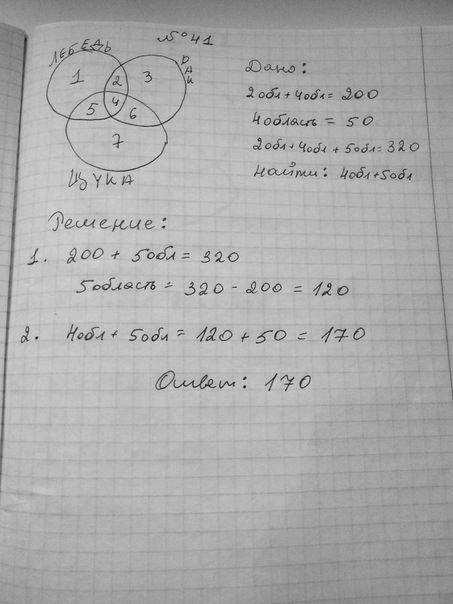 №41
ЛЕБЕДЬ
РАК
1 2 3
5 4 6
7
ЩУКА
Дано:
2обл + 4обл = 200
4область = 50
2обл + 4обл + 5обл = 320
Найти: 4обл + 5обл
Решение:
1. 200 + 5обл = 320
5область = 320 - 200 = 120
2. 4обл + 5обл = 120 + 50 = 170
Ответ: 170